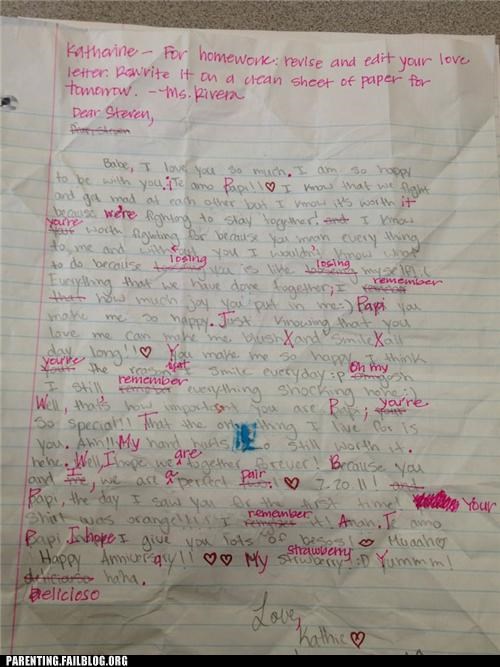 Katherine- For homework: revise and edit your love
letter. Rewrite it on a clean sheet of paper for
tomorrow. --Ms. Rivera
Dear Steven,
Babe, I love you so much. I am so happy
to be with you. ¡Te amo Papi!! ♡ I know that we fight
and get mad at each other but I know it's worth it
because we're fighting to stay together! and I know
you're
worth fighting for because you mean every thing
to me and without you I wouldn't know what
losing losing
to do because you is like myself! :(
Everything that we have done together, I remember
that how much joy you put in me:-) Papi you
make me so happy. Just knowing that you
love me can make me blush X and smile X all
day long!! ♡ You make me so happy I think
you're the reason that I smile everyday :P Oh my gosh
I still remember everything shocking huh? :)
Well, that's how important you are Papi; you're
so special!! That the only thing I live for is
you. Ahh!! My hand hurts still worth it.
hehe. Well, I hope we are together forever! Because you
and me, we are a perfect pair. ♡ 7.20.11! and
Papi, the day I saw you for the first time! Your
shirt was orange!!!! I remember it! Te amo
Papi. I hope I give you lots of besos! Muaah♡
Happy Anniversary!! ♡♡ My strawberry
strawberry :D Yummm!
delicioso haha.
Delicioso
Love,
Kathie ♡
PARENTING.FAILBLOG.ORG